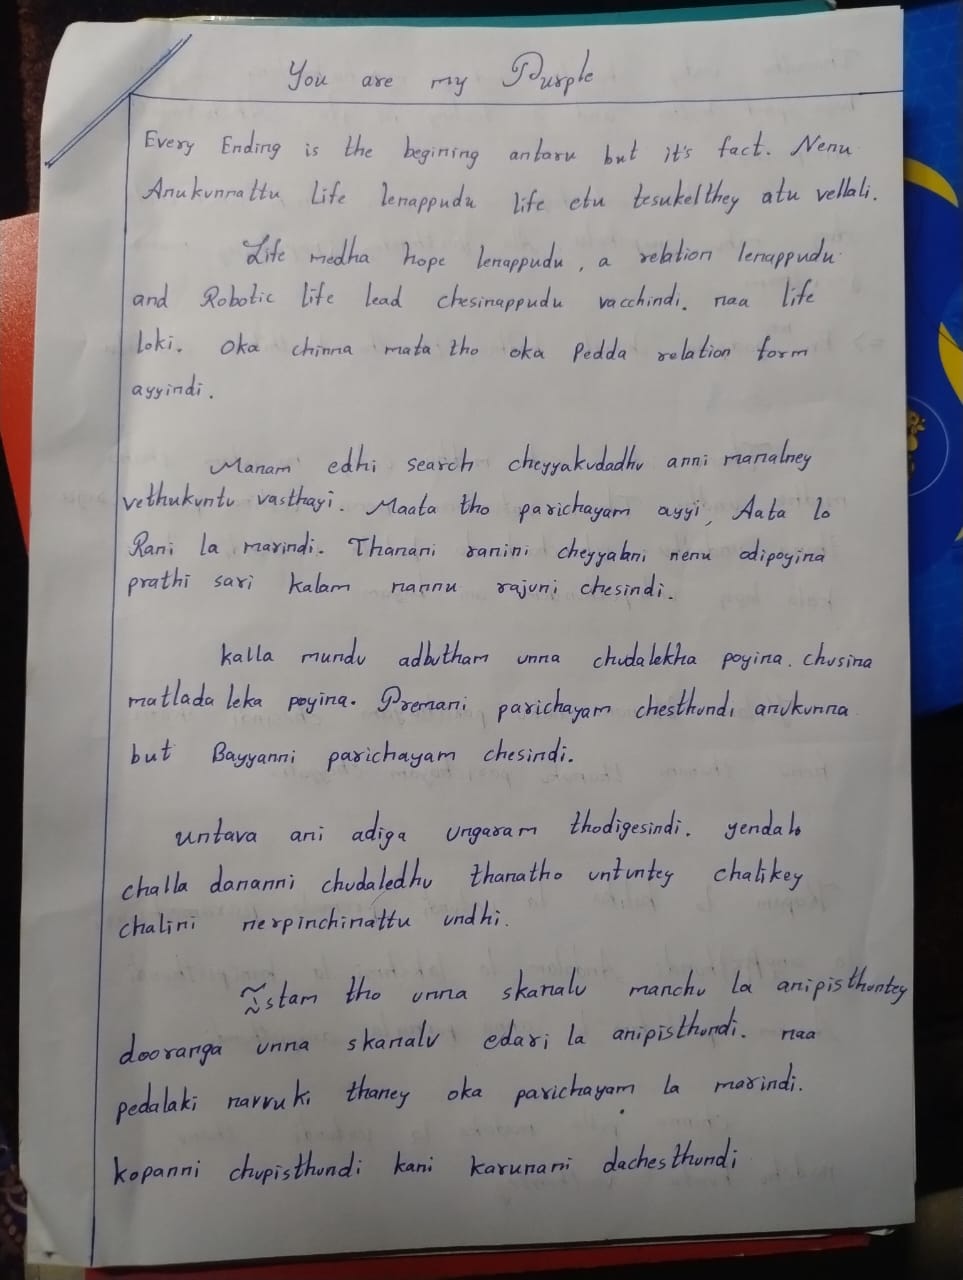 You are my Purple
Every Ending is the begining antaru but it's fact. Nenu
Anukunnattu Life lenappudu life etu tesukelthey atu vellali.
Life medha hope lenappudu, a relation lenappudu
and Robotic life lead chesinappudu vacchindi. naa life
loki. oka chinna mata tho oka Pedda relation form
ayyindi.
Manam edhi search cheyyakudadhu anni manalney
vethukuntu vasthayi. Maata tho parichayam ayyi, Aata lo
Rani la marindi. Thanani ranini cheyyalani nenu odipoyina
prathi sari kalam nannu rajuni chesindi.
kalla mundu adbutham unna chudalekha poyina. chusina
matlada leka poyina. Premani parichayam chesthundi anukunna
but Bayyanni parichayam chesindi.
untava ani adiga ungaram thodigesindi. yendalo
challa dananni chudaledhu thanatho untuntey chalikey
chalini nerpinchinattu undhi.
Istam tho unna skanalu manchu la anipisthuntey
dooranga unna skanalu edari la anipisthundi. naa
pedalaki navvuki thaney oka parichayam la marindi.
kopanni chupisthundi kani karunani dachesthundi